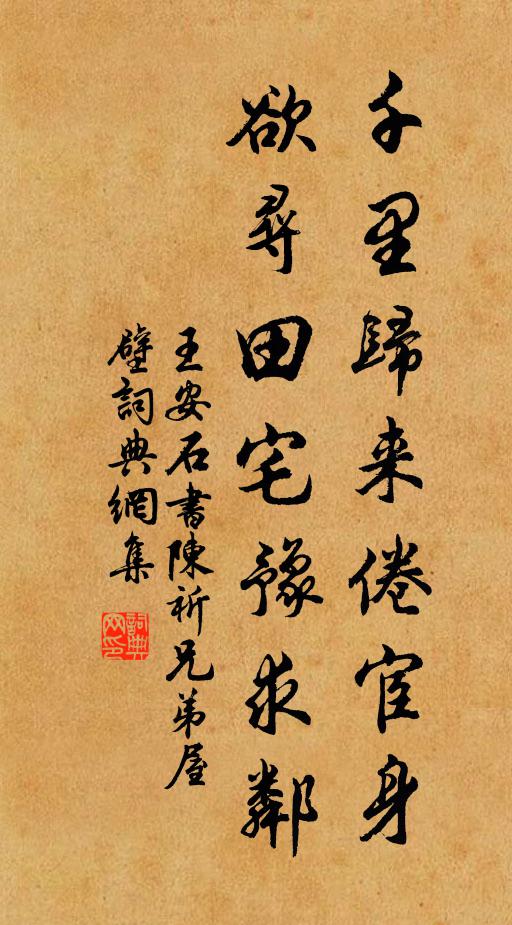 千里歸来倦宦身
欲尋田宅豫求鄰
王安石書陳祈兄弟屋
壁詞典網集
詞典网印